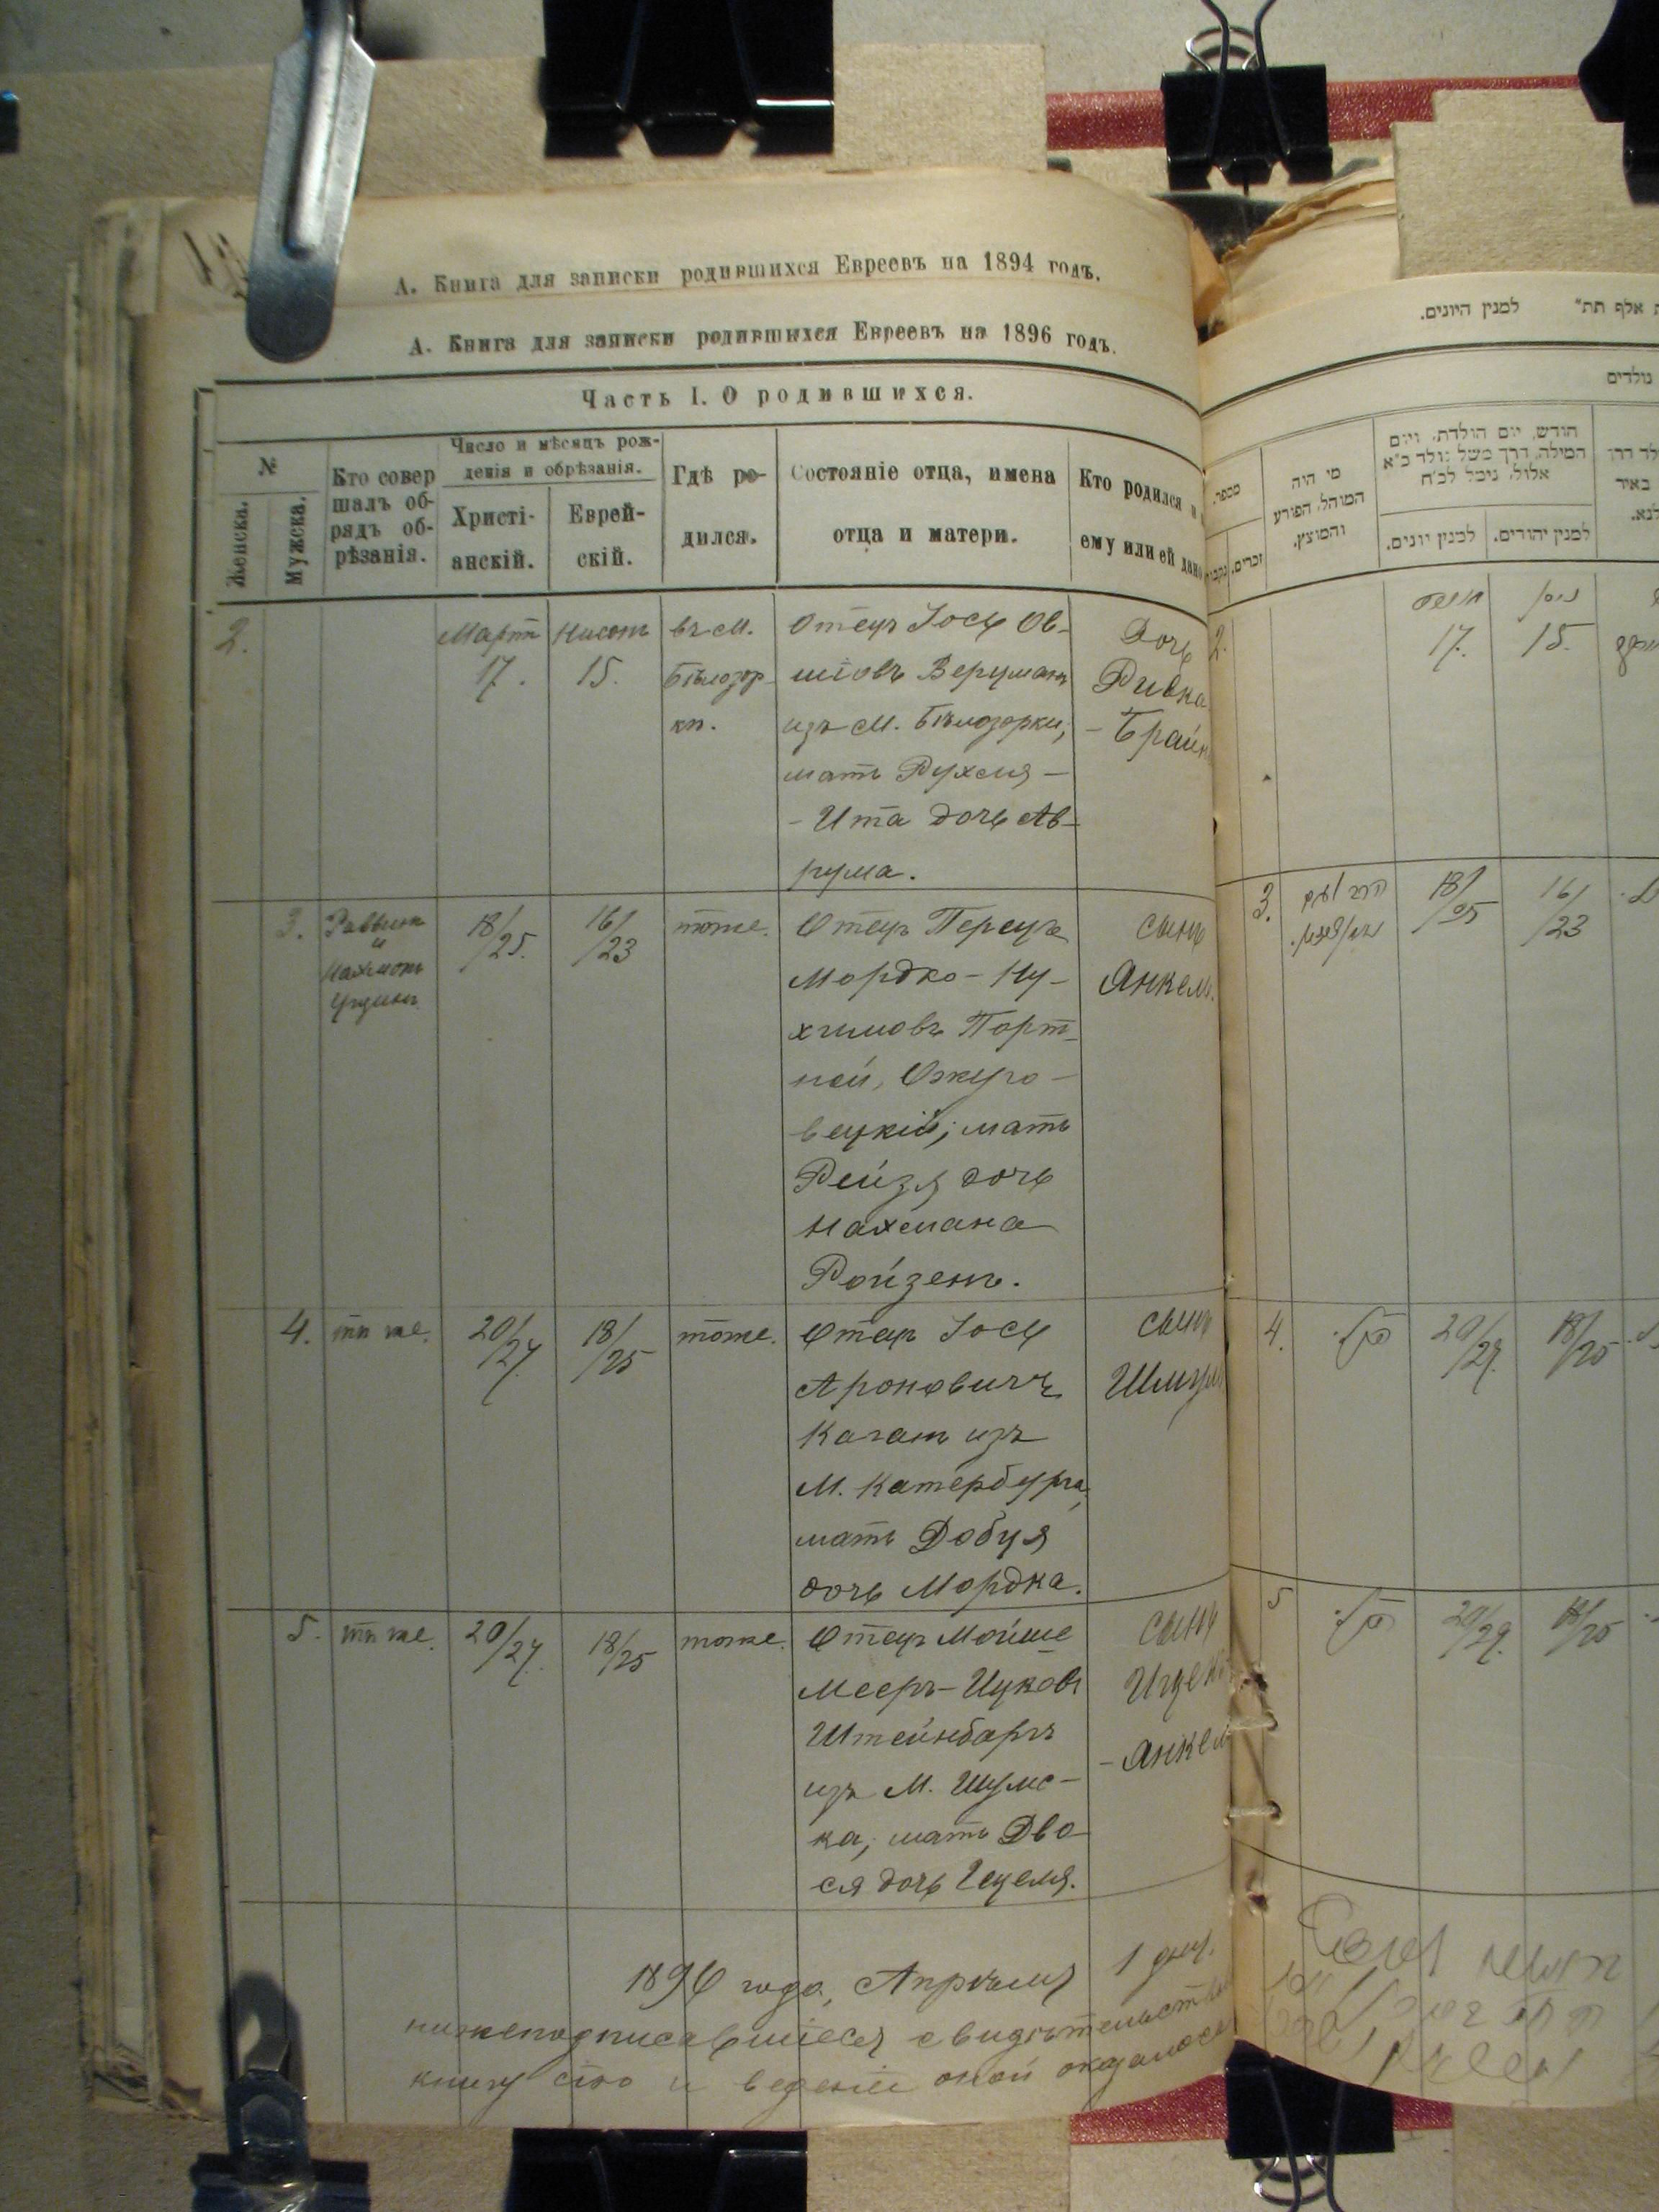 А. Книга для записки родившихся Евреевъ на 1894 годъ.
А. Книга для записки родившихся Евреевъ на 1896 годъ.
Часть I. О родившихся.
№
Женска.
Мужска.
Кто совер
шалъ об-
рядъ об-
рѣзанія.
Число и мѣсяцъ рож-
денія и обрѣзанія.
Христі-
анскій.
Еврей-
скій.
Гдѣ ро-
дился.
Состояніе отца, имена
отца и матери.
Кто родился и
ему или ей дано
2.
Мартъ
17.
Нисонъ
15.
въ м.
Бѣлозор
ки.
Отецъ Іось Ов-
шіовъ Верцманъ
изъ м. Бѣлозорки;
мать Рухля-
-Ита дочь Ав-
рума.
Дочь
Ривка
-Брайн
3.
Раввинъ
и
Нахмонъ
18/
/25.
16/
/23
тоже.
Отецъ Перецъ
Мордко-Ну-
химовъ Порт-
ной, Ожуро-
вецкій; мать
Рейзя дочь
Нахмана
Ройзенъ.
сынъ
Янкель.
4.
тѣ же.
20/
/27.
18/
/25
тоже.
Отецъ Іось
Ароновичъ
Каганъ изъ
м. Катербурга,
мать Добуя
дочь Мордка.
сынъ
Шмуль
5.
тѣ же.
20/
/27.
18/
/25
тоже.
Отецъ Мойше
Мееръ-Ицковъ
Штейнбаргъ
изъ м. Шумс-
ка; мать Дво-
ся дочь Гецеля.
сынъ
Ицекъ
-Янкель
1896 года, Апрѣля 1 дня.
нижеподписавшіеся свидѣтельство
книгу сію и веденіе оной оказалось
אלף תת״ למנין היונים.
נולדים
מספר.
זכרים.
מי היה
המוהל, הפורע
והמוצץ.
חודש, יום הולדת, ויום
המילה, דרך משל נולד כ״א
אלול, נימל לכ״ח
למנין יונים.
למנין יהודים.
באיר
2.
17.
ניסן
15.
3.
18/
/25
16/
/23
4.
20/
/27.
18/
/25
5
20/
/27.
18/
/25